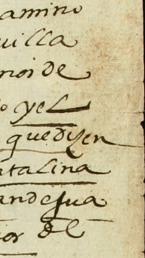 camino
uilla
noi de
o yel
quedizen
atalina
andesua
or del